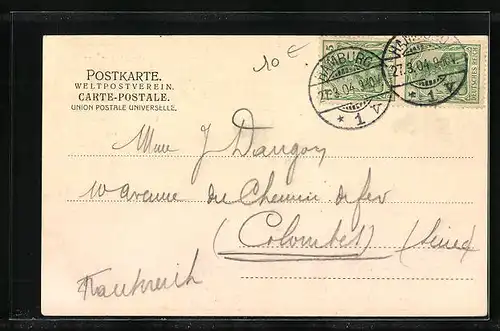 10 €
POSTKARTE.
WELTPOSTVEREIN.
CARTE-POSTALE.
UNION POSTALE UNIVERSELLE.
HAMBURG
27.9.04
* 1
HAMBURG
27.9.04
* 1
DEUTSCHES REICH
Mme J Dangon
10 avenue du Chemin de fer
(Colombes) (Seine)
Frankreich